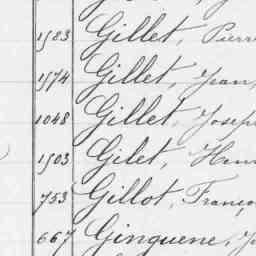 1583 Gillet, Pierr
1574 Gillet, Jean,
1048 Gillet, Joseph
1503 Gilet, Hen
753 Gillot, Franço
667 Ginguene, J